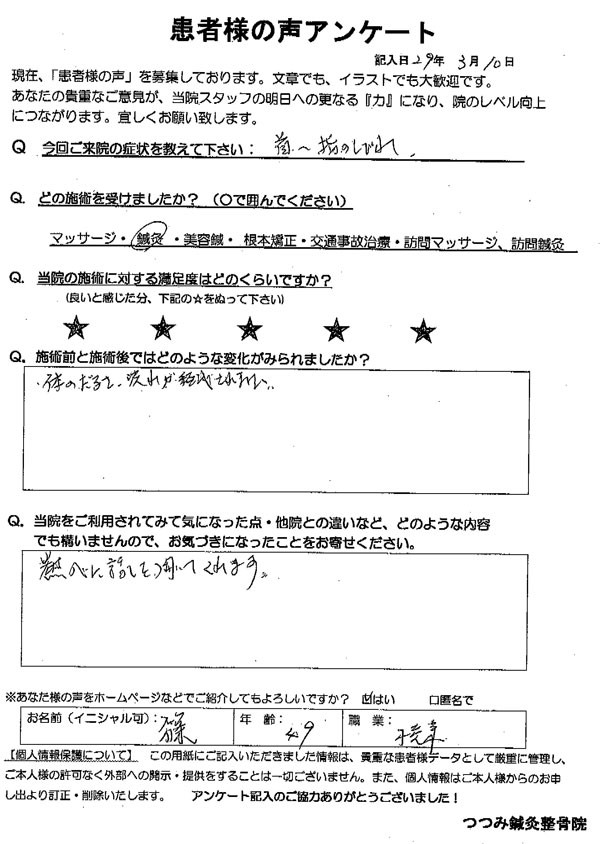 患者様の声アンケート
記入日29年 3月10日
現在、「患者様の声」を募集しております。文章でも、イラストでも大歓迎です。
あなたの貴重なご意見が、当院スタッフの明日への更なる『力』になり、院のレベル向上
につながります。宜しくお願い致します。
Q 今回ご来院の症状を教えて下さい： 首〜指のしびれ
Q. どの施術を受けましたか？（〇で囲んでください）
マッサージ・鍼灸・美容鍼・根本矯正・交通事故治療・訪問マッサージ、訪問鍼灸
Q. 当院の施術に対する満足度はどのくらいですか？
（良いと感じた分、下記の☆をぬって下さい）
★ ★ ★ ★ ★
Q. 施術前と施術後ではどのような変化がみられましたか？
・体のだるさ、疲れが軽減されました。
Q. 当院をご利用されてみて気になった点・他院との違いなど、どのような内容
でも構いませんので、お気づきになったことをお寄せください。
熱心に話しを聞いてくれます。
※あなた様の声をホームページなどでご紹介してもよろしいですか？ ☑はい 口匿名で
お名前（イニシャル可）： 年 齢： 49 職 業：
【個人情報保護について】 この用紙にご記入いただきました情報は、貴重な患者様データとして厳重に管理し、
ご本人様の許可なく外部への開示・提供をすることは一切ございません。また、個人情報はご本人様からのお申
し出より訂正・削除いたします。 アンケート記入のご協力ありがとうございました！
つつみ鍼灸整骨院